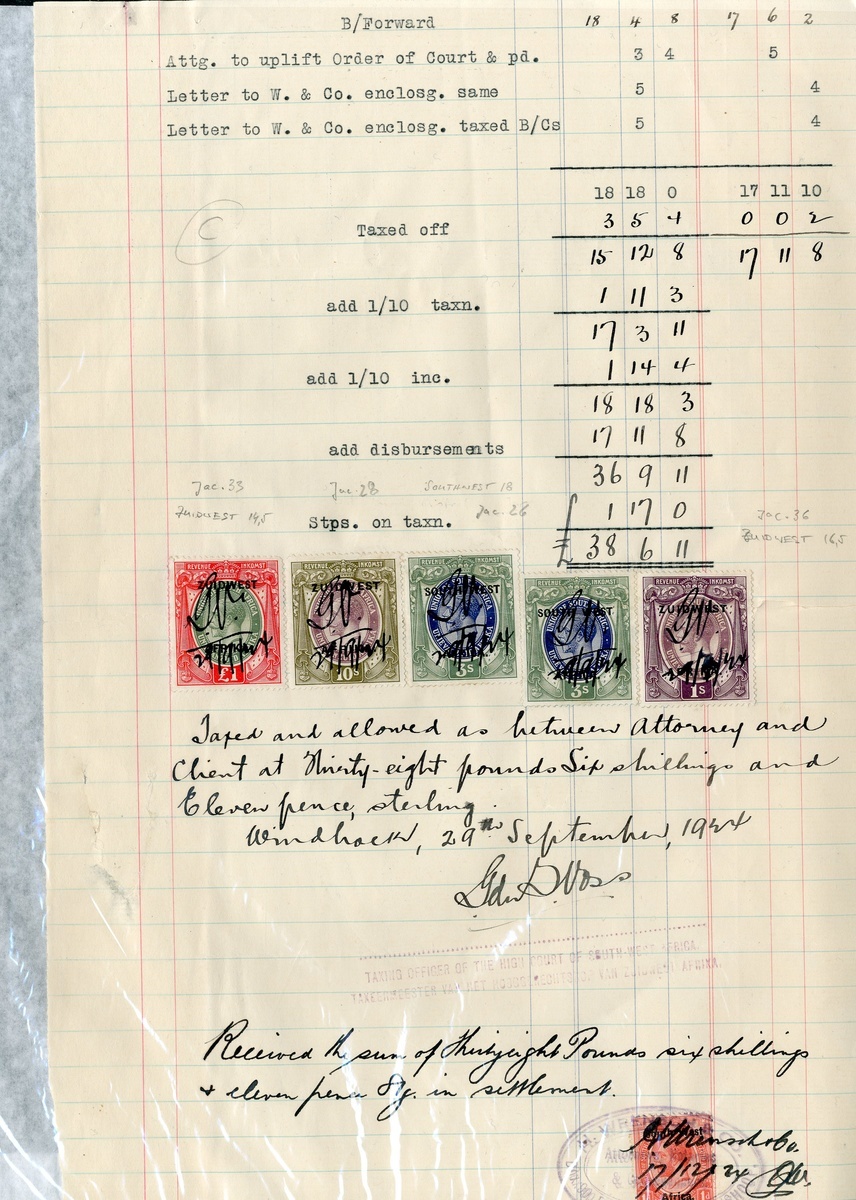 B/Forward 18 4 8 17 6 2
Attg. to uplift Order of Court & pd. 3 4 5
Letter to W. & Co. enclosg. same 5 4
Letter to W. & Co. enclosg. taxed B/Cs 5 4
18 18 0 17 11 10
C
Taxed off 3 5 4 0 0 2
15 12 8 17 11 8
add 1/10 taxn. 1 11 3
17 3 11
add 1/10 inc. 1 14 4
18 18 3
add disbursements 17 11 8
36 9 11
Jac. 33 Jac. 28 SOUTHWEST 18
ZUIDWEST 14,5 Jac. 26 Jac. 36
Stps. on taxn. £ 1 17 0 ZUIDWEST 16,5
£ 38 6 11
REVENUE INKOMST REVENUE INKOMST REVENUE INKOMST REVENUE INKOMST REVENUE INKOMST
ZUIDWEST ZUIDWEST SOUTH WEST SOUTH WEST ZUIDWEST
£1 10s 3s 3s 1s
Taxed and allowed as between Attorney and
Client at Thirty-eight pounds Six shillings and
Eleven pence, sterling.
Windhoek, 29th September, 1924
TAXING OFFICER OF THE HIGH COURT OF SOUTH-WEST AFRICA.
TAXEERMEESTER VAN HET HOOGGERECHTSHOF VAN ZUIDWEST AFRIKA.
Received the sum of Thirtyeight Pounds six shillings
& eleven pence in settlement.
17/12/24
Africa.